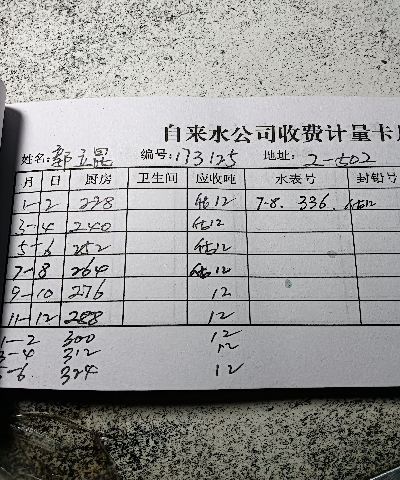 自来水公司收费计量卡
姓名:郭立昆 编号:173125 地址:2-502
月 日 厨房 卫生间 应收吨 水表号 封铅号
1-2 228 估12 7-8. 336. 估12
3-4 240 估12
5-6 252 估12
7-8 264 估12
9-10 276 12
11-12 288 12
1-2 300 12
3-4 312 12
5-6 324 12